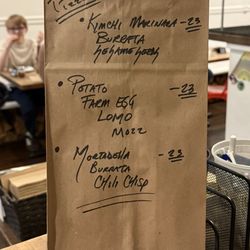 Pizza
• Kimchi Marinara - 23
Burrata
Sesame Seeds
• Potato - 23
Farm Egg
Lomo
Mozz
• Mortadella - 23
Burrata
Chili Chisp